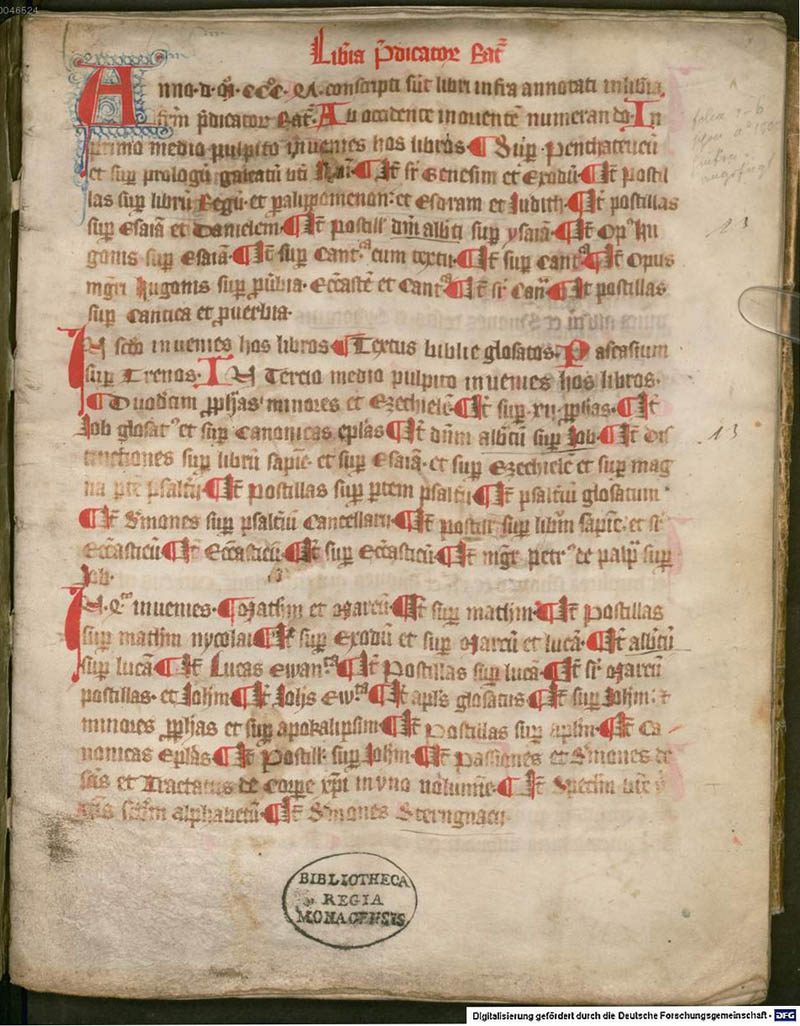 0046524
Libria p̄dicator̄ Rat̄
Anno · d · M · CCC · XL · conscripti sūt libri infra annotati in libria
frm̄ p̄dicator̄ Rat̄ · Ab occidente inouente numerando In
primo medio pulpito inuenies hos libros ¶ Sup̄ · Penthateucū
et sup̄ prologū galeatū ¶ It̄ sr̄ Genesim et Exodū ¶ It̄ postil
las sup̄ librū Regū · et paralypomenon · et Esdram et Judith · ¶ It̄ postillas
sup̄ Esaiā et Danielem · ¶ It̄ postill̄ dn̄i alb̄ti sup̄ ysaiā · ¶ It̄ Op9 hu
gonis sup̄ Esaiā · ¶ It̄ sup̄ Cant a cum textu · ¶ It̄ sup̄ Cant a ¶ It̄ Opus
mgr̄i hugonis sup̄ pu̅bia · Eccāste̅ et Cant a ¶ It̄ sr̄ Can̄ ¶ It̄ postillas
sup̄ Cantica et prouerbia ·
In scd̄o inuenies hos libros ¶ Textus biblie glosatos · Pascasium
sup̄ Trenos · In Tercio medio pulpito inuenies hos libros ·
¶ Duodecim p̄ph̄as minores et Ezechielē ¶ It̄ sup̄ · xii · p̄ph̄as · ¶ It̄
Job glosat9 et sup̄ Canonicas ep̄las ¶ It̄ dn̄m alb̄tū sup̄ Job · ¶ It̄ dis
tinctiones sup̄ librū sapiē · et sup̄ Esaiā · et sup̄ Ezechielē et sup̄ mag
na p̄te psalt̄ij ¶ It̄ Postillas sup̄ p̄tem psalt̄ij ¶ It̄ psalt̄iū glosatum ·
¶ It̄ S̄mones sup̄ psalt̄iū Cancellarij ¶ It̄ postill̄ sup̄ libr̄m sapiē · et sr̄
Ecc̄asticū ¶ It̄ Ecc̄asticū · ¶ It̄ sup̄ Ecc̄asticū ¶ It̄ mgr̄ petr9 de palp̄ sup̄
Job ·
In · q o inuenies · ¶ Math̄m et Marcū · ¶ It̄ sup̄ math̄m · ¶ It̄ Postillas
sup̄ math̄m nycolai ¶ It̄ sup̄ Exodū et sup̄ Marcū et lucā · ¶ It̄ alb̄tū
sup̄ lucā ¶ It̄ Lucas Ewan ta ¶ It̄ Postillas sup̄ lucā ¶ It̄ sr̄ Marcū
postillas · et Joh̄m ¶ It̄ Joh̄s Ew ta ¶ It̄ ap̄ls glosatus ¶ It̄ sup̄ Joh̄m · et
minores p̄ph̄as et sup̄ apokalipsim ¶ It̄ Postillas sup̄ ap̄lm · ¶ It̄ Ca
nonicas Ep̄las ¶ It̄ Postill̄ · sup̄ Joh̄m · ¶ It̄ Passiones et S̄mones de
sc̄is et Tractatus de Corp̄e xp̄i in vno volumīe · ¶ It̄ Specl̄m
sc̄dm alphabetū · ¶ It̄ S̄mones
13
13
BIBLIOTHECA
REGIA
MONACENSIS
Digitalisierung gefördert durch die Deutsche Forschungsgemeinschaft - DFG